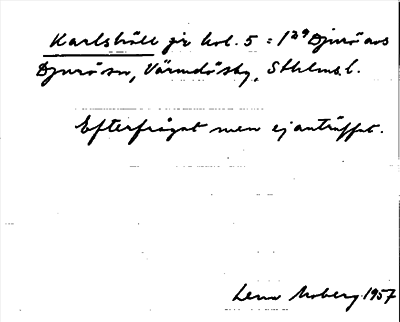 Karlshäll jr kol. 5 : 1 29 Djurö avs
Djurö sn, Värmdö sky, Sthlms l.
Efterfrågat men ej anträffat.
Lena Moberg 1957